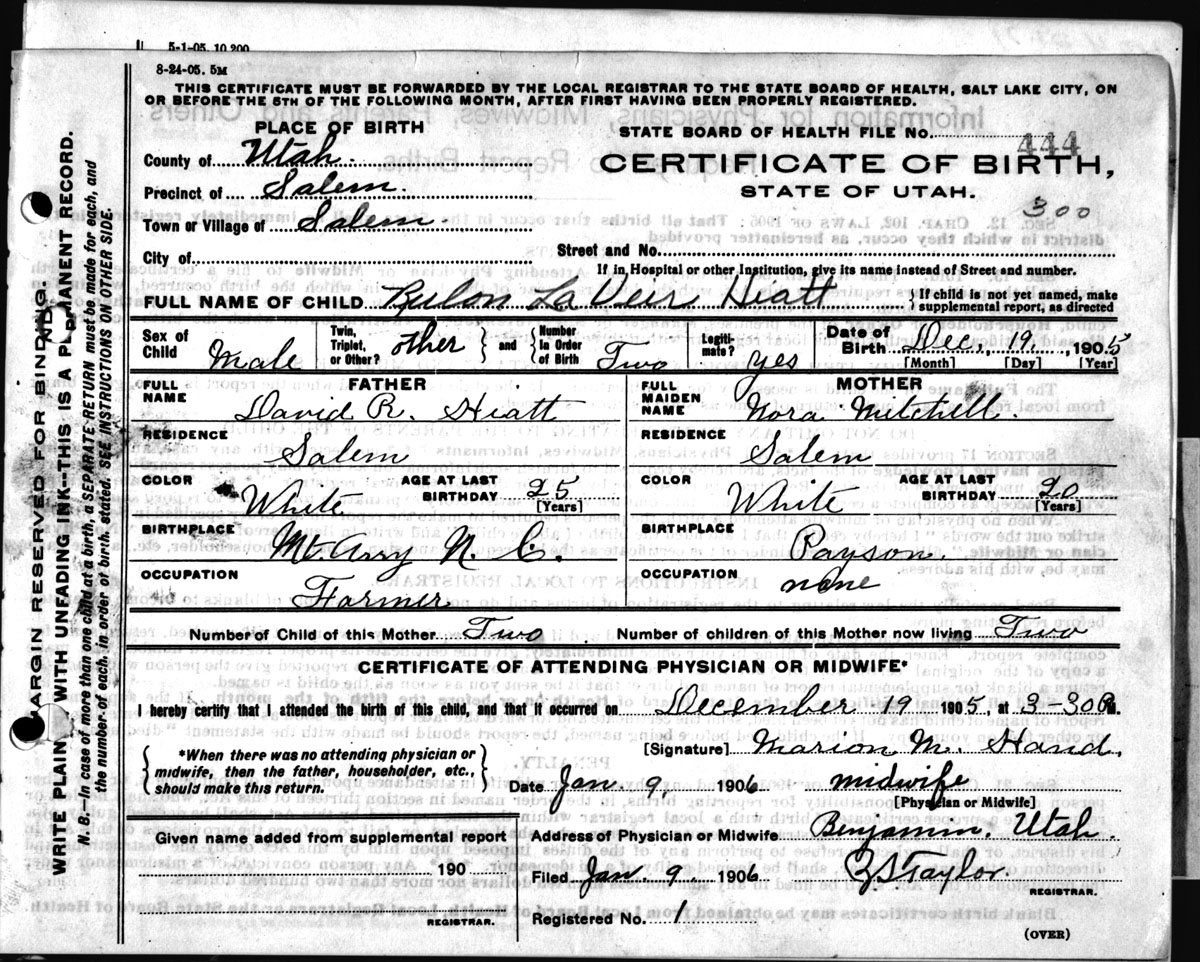 5-1-05. 10,200
8-24-05. 5M
THIS CERTIFICATE MUST BE FORWARDED BY THE LOCAL REGISTRAR TO THE STATE BOARD OF HEALTH, SALT LAKE CITY, ON
OR BEFORE THE 5TH OF THE FOLLOWING MONTH, AFTER FIRST HAVING BEEN PROPERLY REGISTERED.
MARGIN RESERVED FOR BINDING
WRITE PLAINLY WITH UNFADING INK--THIS IS A PERMANENT RECORD.
N. B.--In case of more than one child at a birth, a SEPARATE RETURN must be made for each, and
the number of each, in order of birth, stated. SEE INSTRUCTIONS ON OTHER SIDE.
PLACE OF BIRTH
County of Utah.
Precinct of Salem.
Town or Village of Salem
City of
STATE BOARD OF HEALTH FILE No. 444
CERTIFICATE OF BIRTH,
STATE OF UTAH.
300
Street and No.
If in Hospital or other Institution, give its name instead of Street and number.
FULL NAME OF CHILD Rulon LaVeir Hiatt
If child is not yet named, make
supplemental report, as directed
Sex of Child Male
Twin, Triplet, or Other? other
and
Number in Order of Birth Two
Legitimate? yes
Date of Birth Dec., 19, 1905
[Month] [Day] [Year]
FATHER
FULL NAME David R. Hiatt
RESIDENCE Salem
COLOR White
AGE AT LAST BIRTHDAY 25
[Years]
BIRTHPLACE Mt Airy N. C.
OCCUPATION Farmer
MOTHER
FULL MAIDEN NAME Nora Mitchell.
RESIDENCE Salem
COLOR White
AGE AT LAST BIRTHDAY 20
[Years]
BIRTHPLACE Payson.
OCCUPATION none
Number of Child of this Mother Two
Number of children of this Mother now living Two
CERTIFICATE OF ATTENDING PHYSICIAN OR MIDWIFE*
I hereby certify that I attended the birth of this child, and that it occurred on December 19 1905, at 3-30 P. M.
*When there was no attending physician or
midwife, then the father, householder, etc.,
should make this return.
[Signature] Marion M. Hand,
Date Jan. 9, 1906 midwife
[Physician or Midwife]
Given name added from supplemental report
190
REGISTRAR.
Address of Physician or Midwife Benjamin, Utah.
Filed Jan. 9 1906 Z S Taylor
REGISTRAR.
Registered No. 1
(OVER)